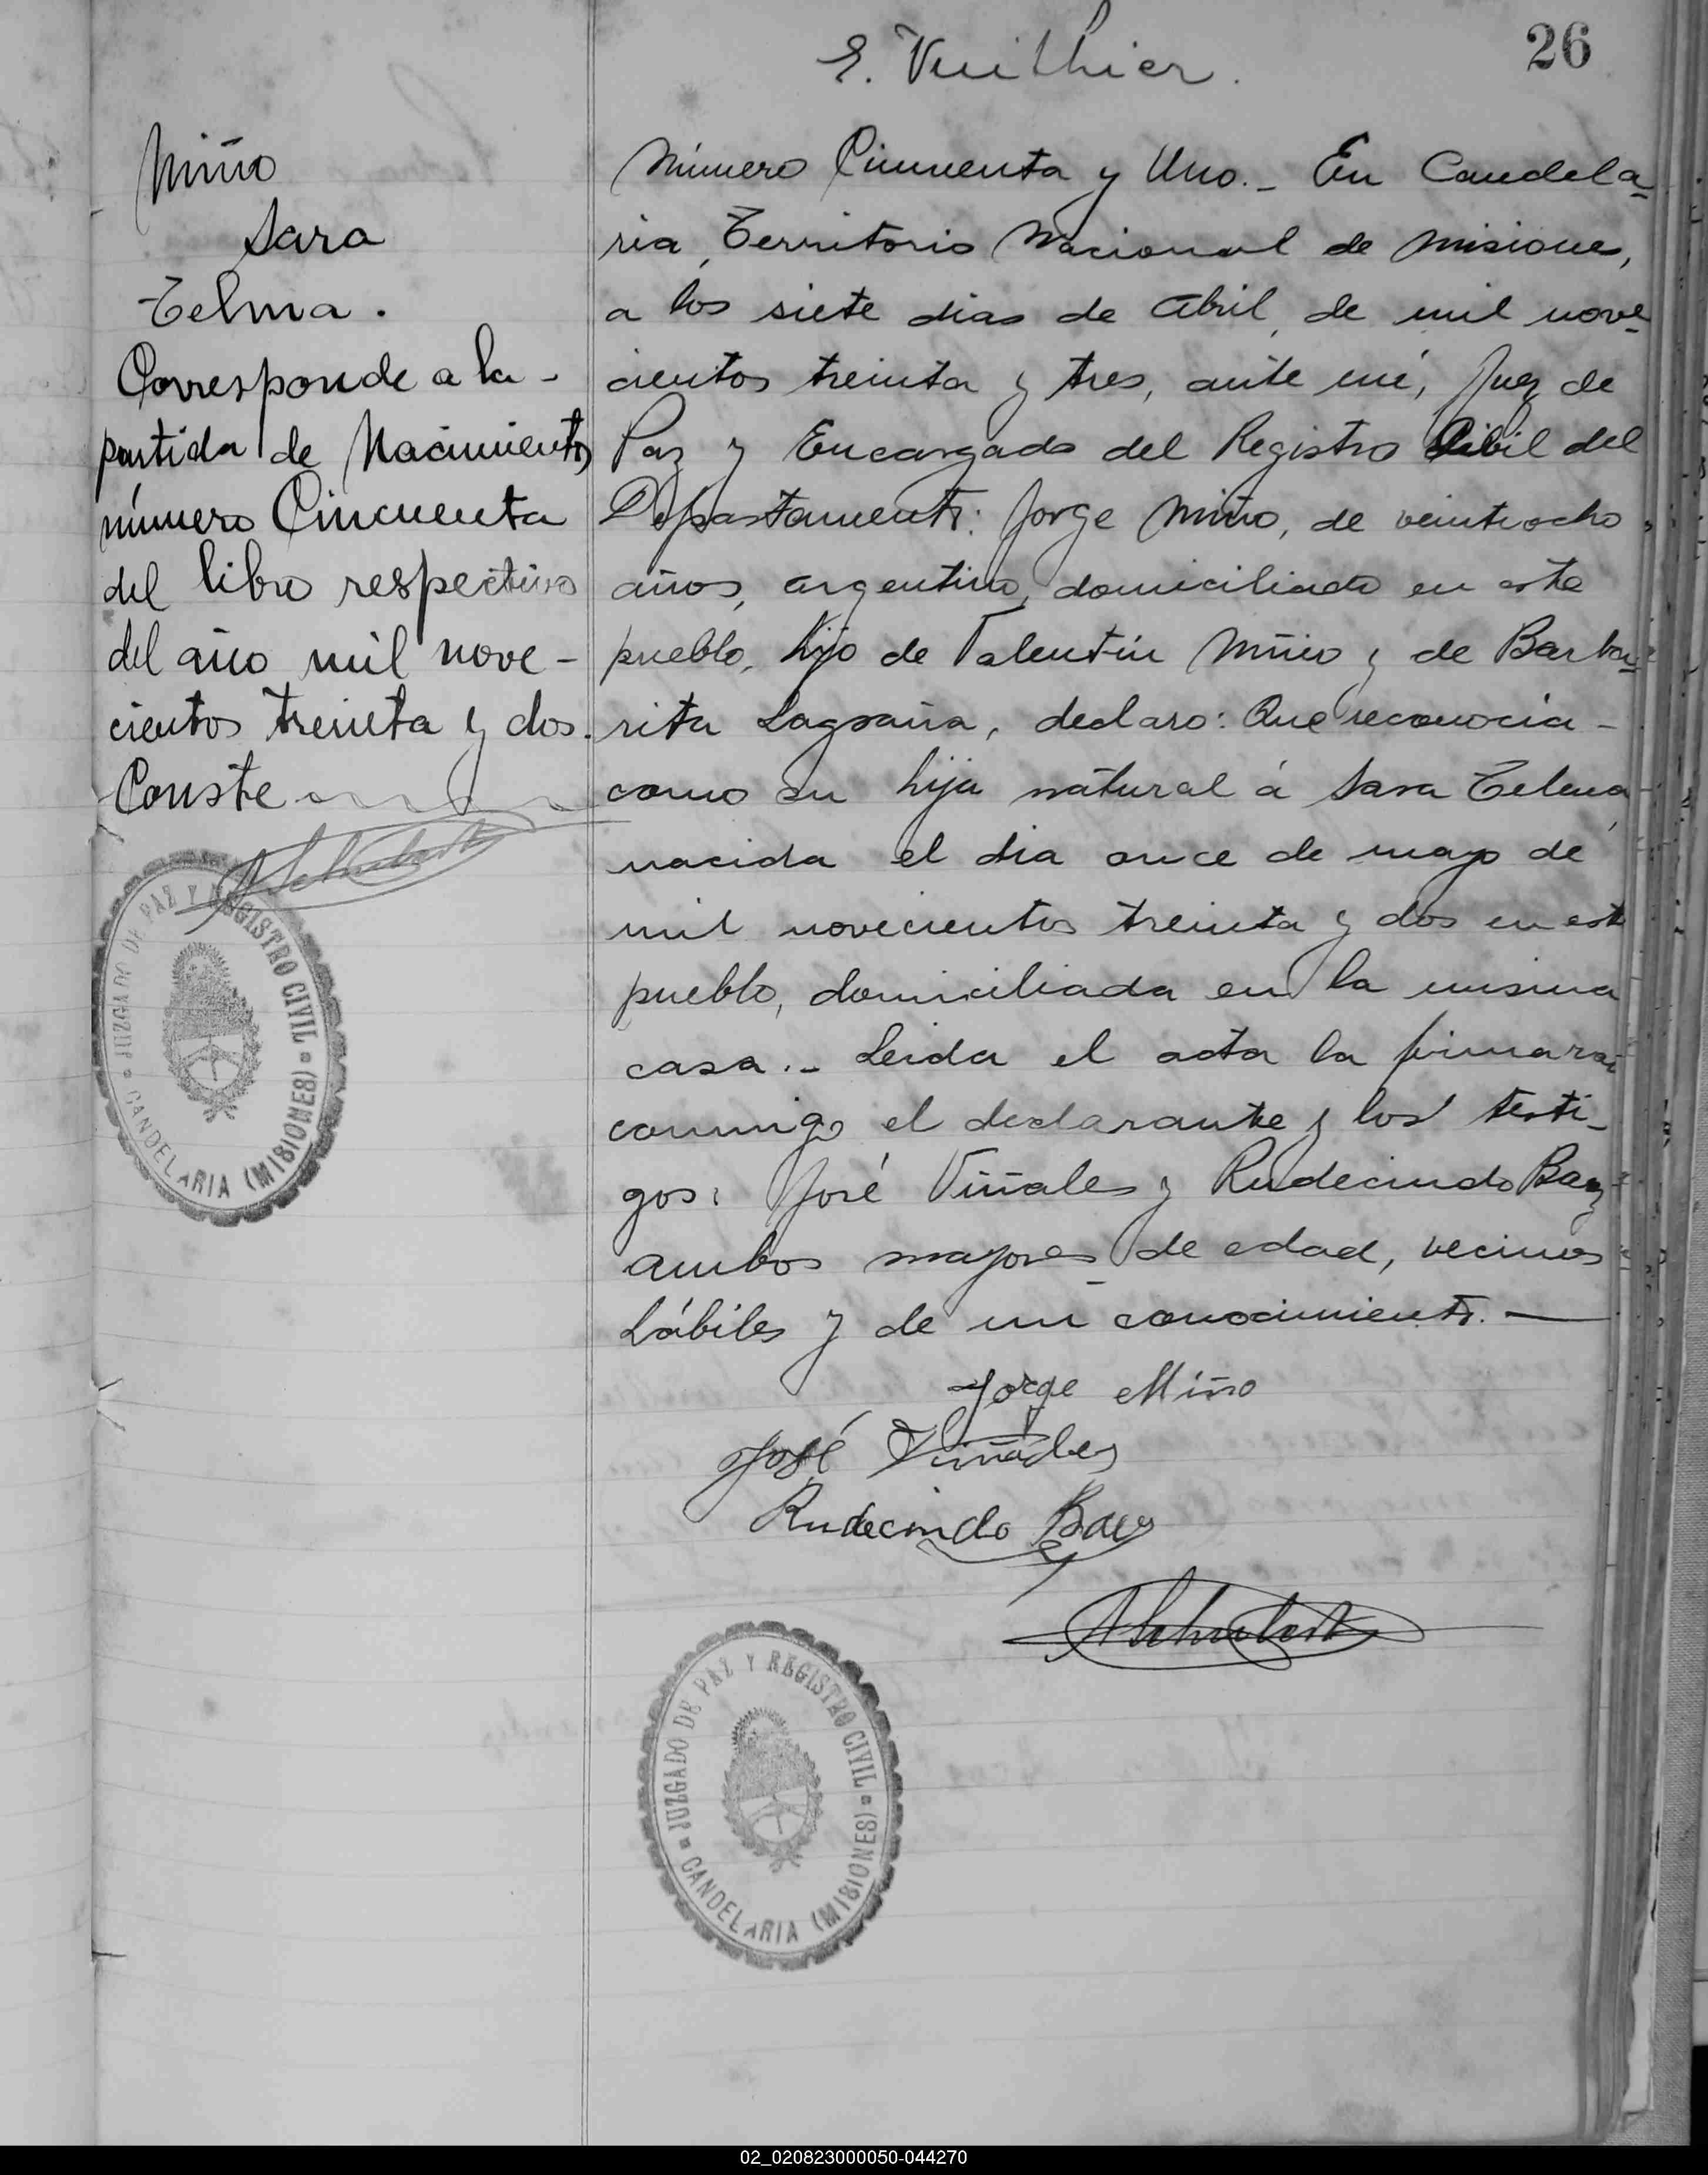 E. Vuilhier.
26
Miño
Sara
Telma.
Corresponde a la-
partida de Nacimiento
número Cincuenta
del libro respectivo
del año mil nove-
cientos treinta y dos.
Conste
JUZGADO DE PAZ Y REGISTRO CIVIL
CANDELARIA (MISIONES)
Número Cincuenta y Uno.- En Candela-
ria, Territorio Nacional de Misiones,
a los siete dias de Abril, de mil nove-
cientos treinta y tres, ante mí, Juez de
Paz y Encargado del Registro Civil del
Departamento: Jorge Miño, de veintiocho
años, argentino, domiciliado en este
pueblo, hijo de Valentín Miño y de Barba-
rita Lagraña, declaro: Que reconocia-
como su hija natural á Sara Telma
nacida el dia once de mayo de
mil novecientos treinta y dos en este
pueblo, domiciliada en la misma
casa.- Leida el acta la firmaron
conmigo el declarante y los testi-
gos: José Viñales y Rudecindo Baez
ambos mayores de edad, vecinos
hábiles y de mi conocimiento.-
Jorge Miño
José Viñales
Rudecindo Baez
JUZGADO DE PAZ Y REGISTRO CIVIL
CANDELARIA (MISIONES)
02_020823000050-044270